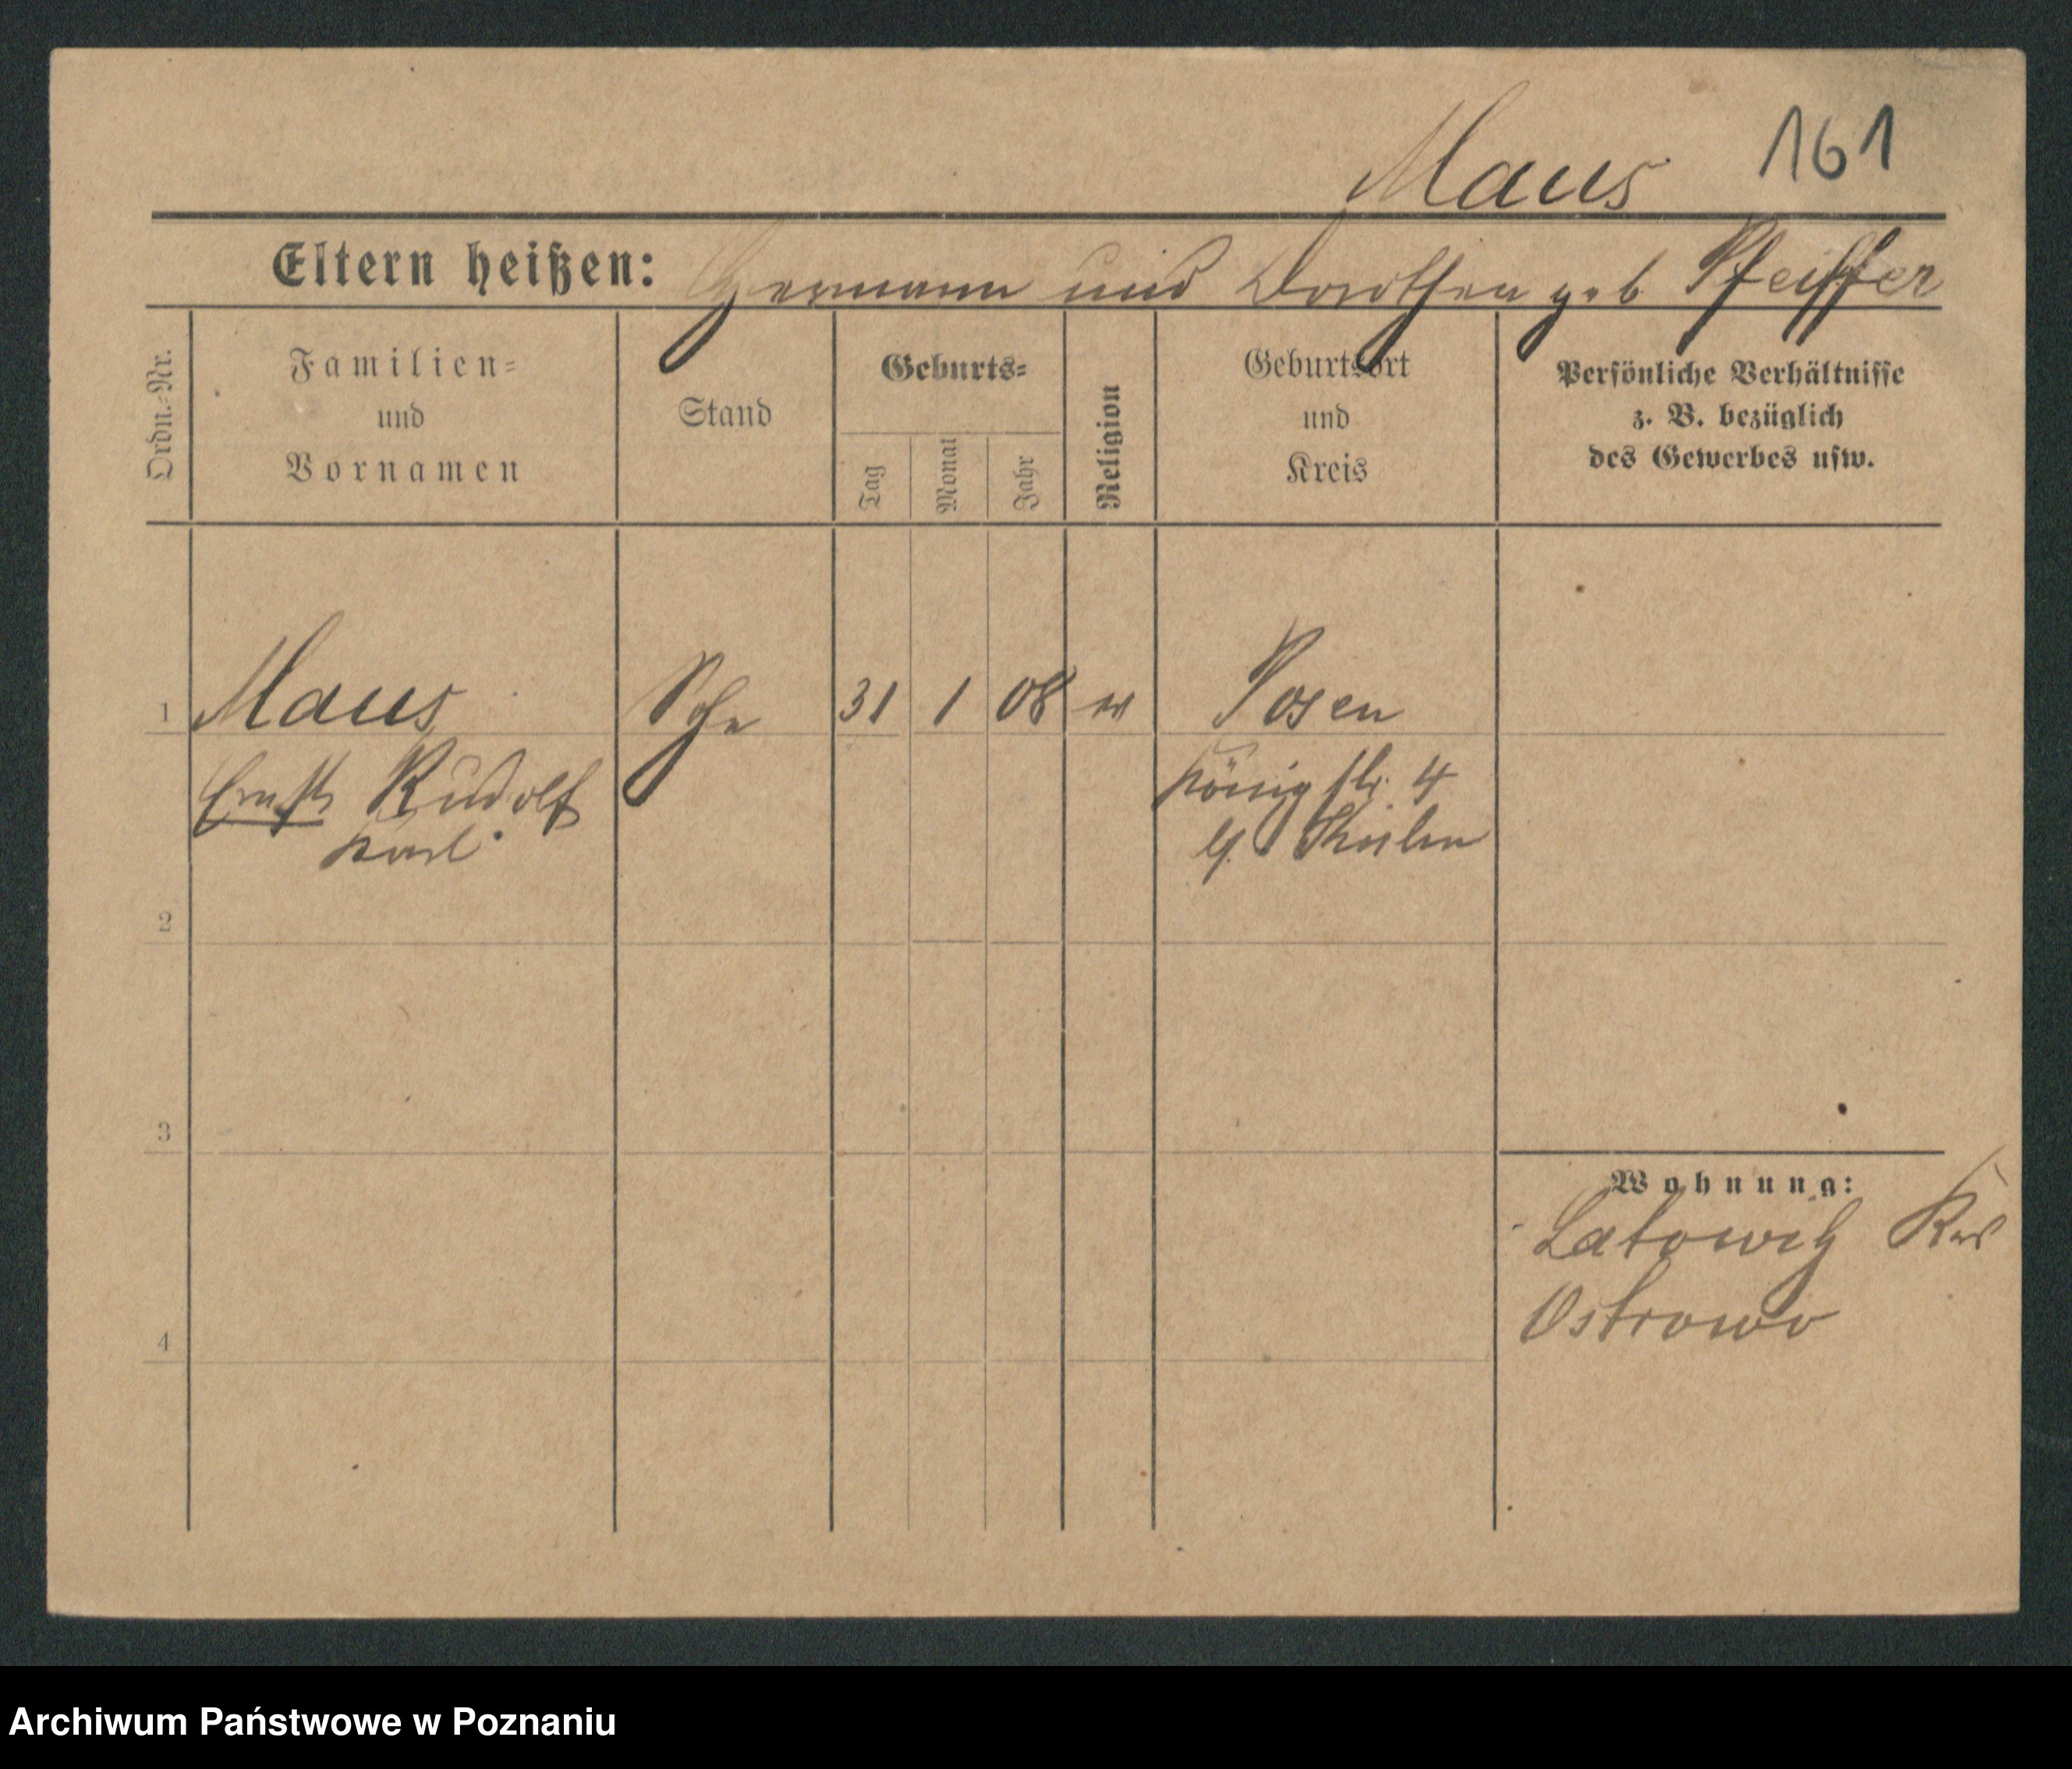 Maus 161
Eltern heißen: Hermann und Dorothea geb Pfeiffer
Ordn.-Nr.
Familien-
und
Vornamen
Stand
Geburts-
Tag
Monat
Jahr
Religion
Geburtsort
und
Kreis
Persönliche Verhältnisse
z. B. bezüglich
des Gewerbes usw.
1 Maus 31 1 08 ev Posen
Ernst Rudolf Königstr. 4
Karl
2
3
Wohnung:
Latowitz Krs
Ostrowo
4
Archiwum Państwowe w Poznaniu